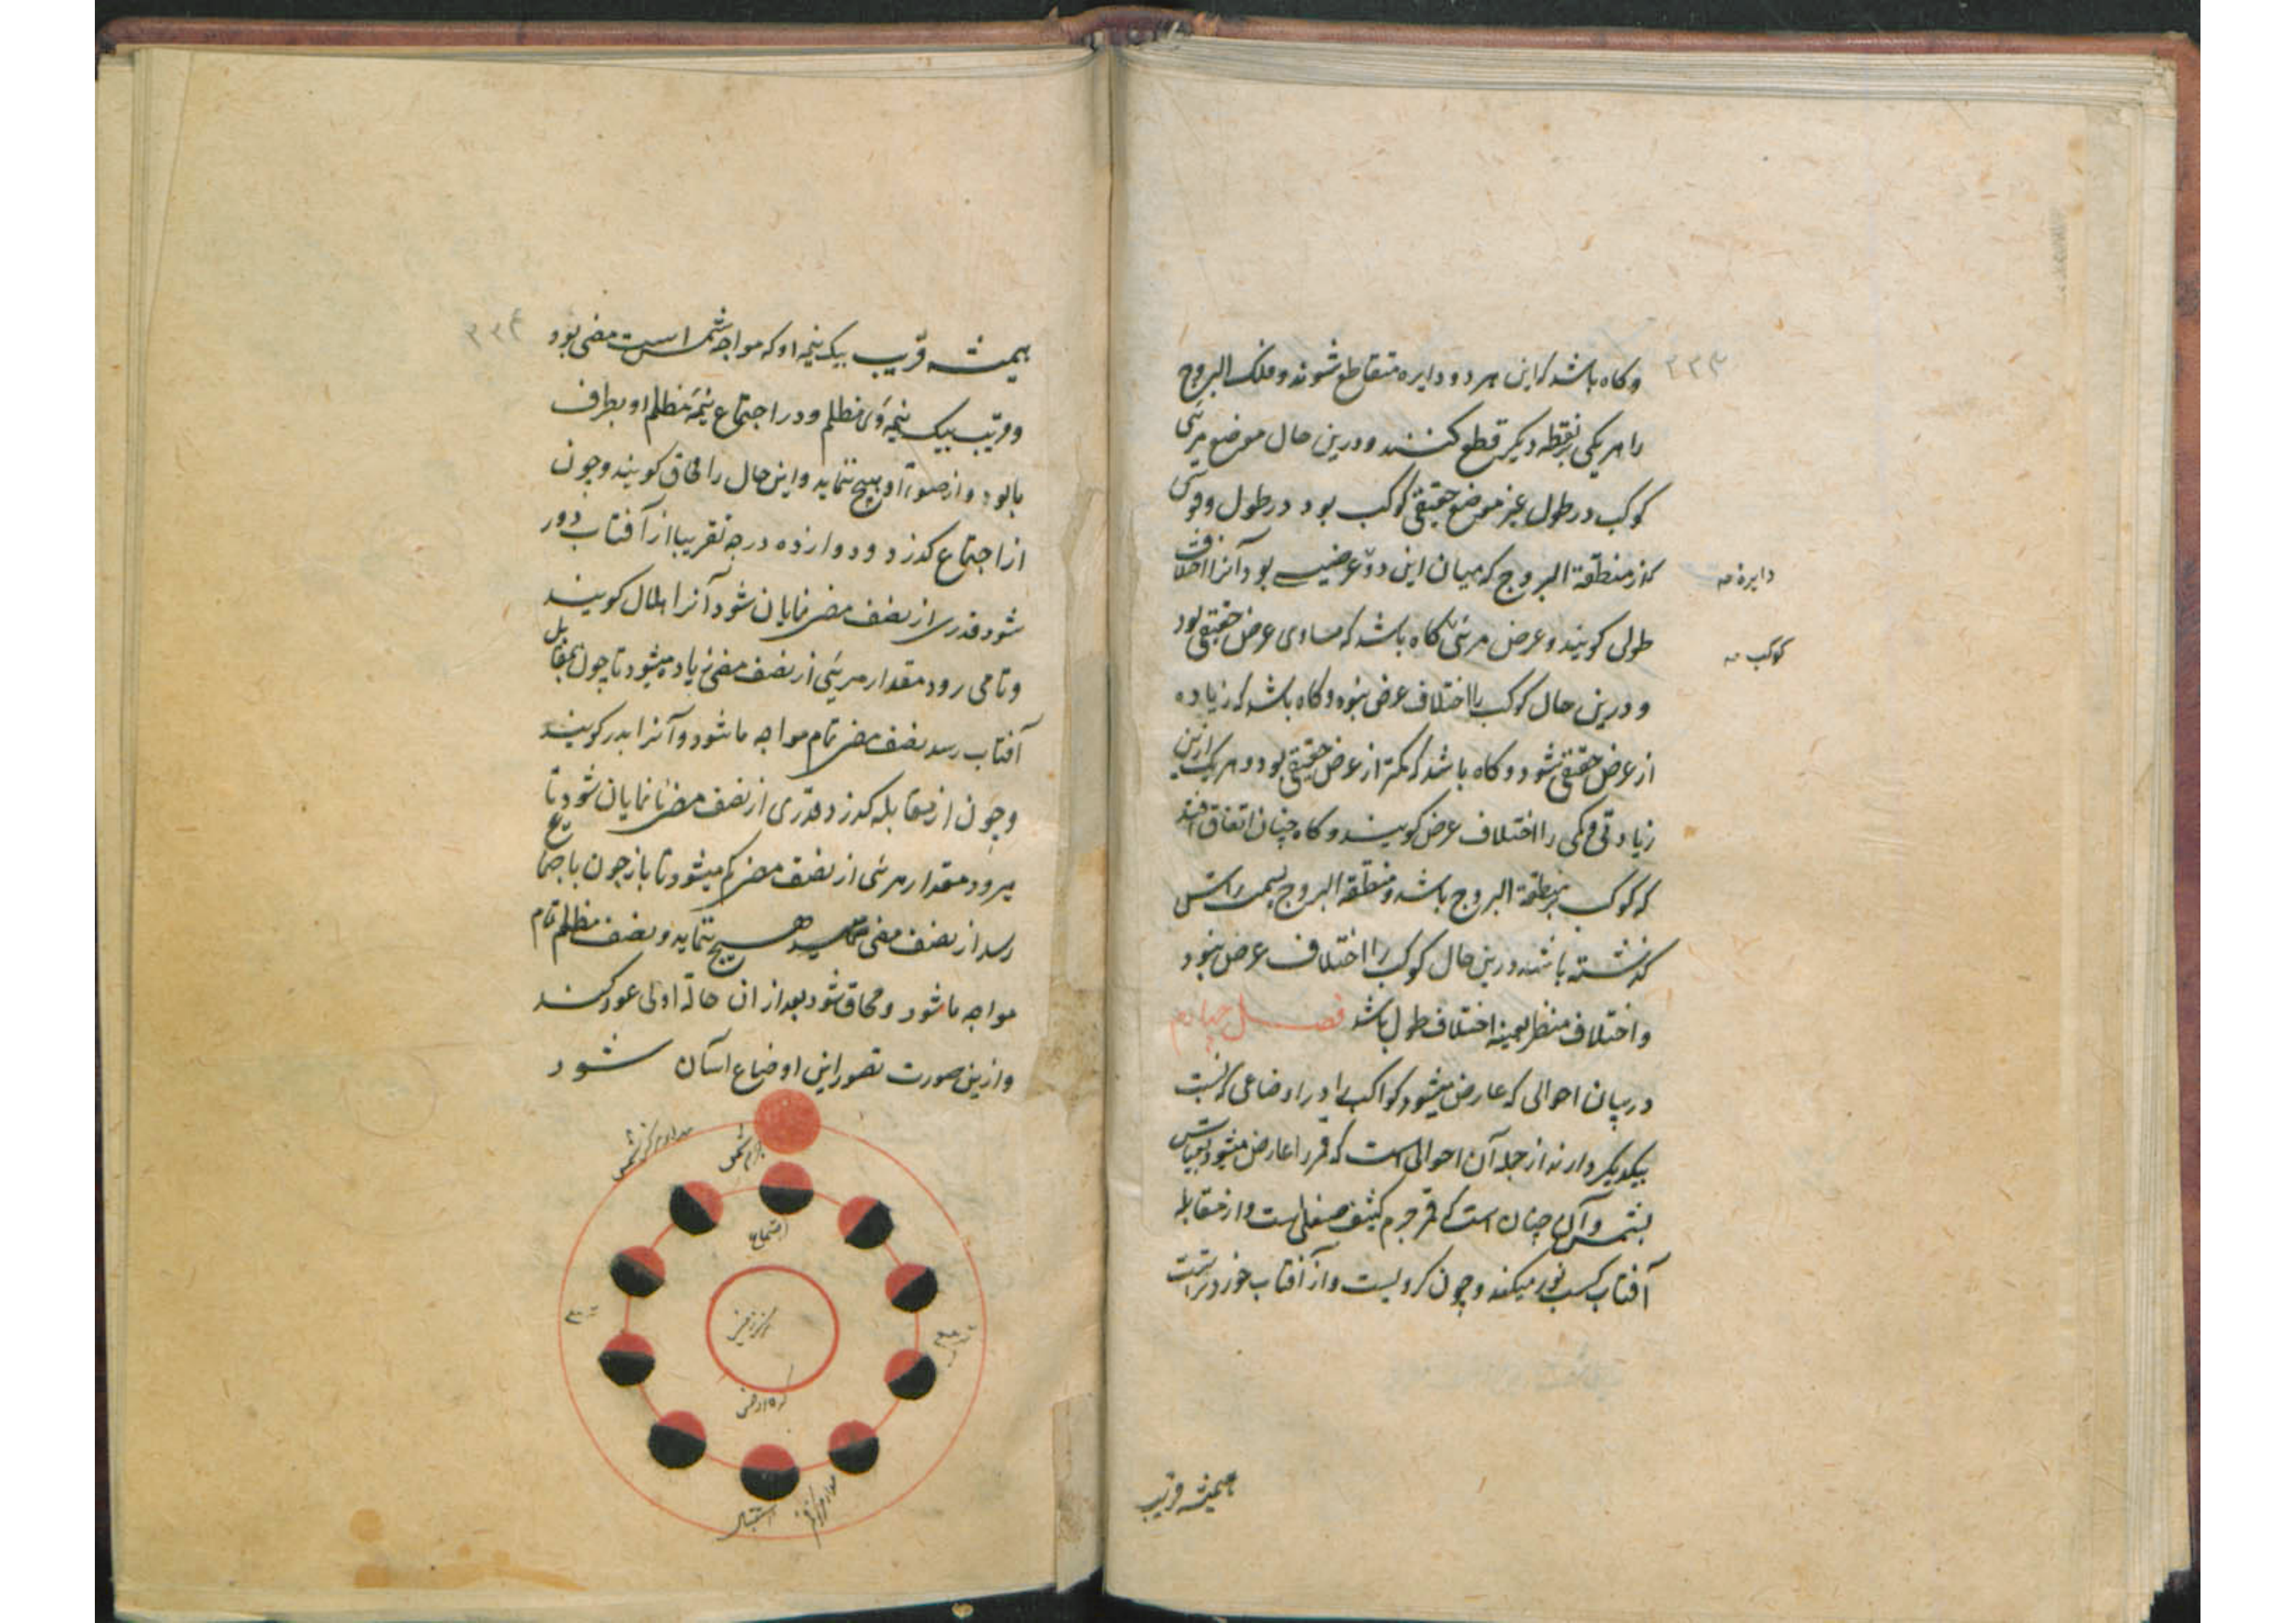 ۲۳۳
وکاه باشد که این هر دو دایره متقاطع شوند و فلک البروج
را هر یکی بنقطه دیکر قطع کنند و درین حال موضع مرئی
کوکب در طول غیر موضع حقیقی کوکب بود در طول و قوسی
که از منطقة البروج که میان این دو عرضیه بود آنرا اختلاف
دایره صه
طولی کویند و عرض مرئی کاه باشد که مساوی عرض حقیقی بود
کوکب صه
و درین حال کوکب را اختلاف عرض نبود و کاه باشد که زیاده
از عرض حقیقی شود و کاه باشد که کمتر از عرض حقیقی بود و هر یک ازین
زیادتی و کمی را اختلاف عرض کویند و کاه چنان اتفاق افتد
که کوکب بر منطقة البروج باشد و منطقة البروج بسمت راس
کذشته باشد درین حال کوکب را اختلاف عرض نبود
و اختلاف منظر بعینه اختلاف طول باشد فصل چهارم
در بیان احوالی که عارض میشود کواکب را در اوضاعی که نسبت
بیکدیکر دارند از جمله آن احوالی است که قمر را عارض میشود بقیاس
بشمس و آن چنان است که قمر جرم کثیف صیقلی است و از مقابله
آفتاب کسب نور میکند و چون کرویست و از آفتاب خوردتر است
همیشه قریب
۲۳۴
همیشه قریب بیک نیمه او که مواجه شمس است مضی بود
و قریب بیک نیمه وی مظلم و در اجتماع نیمه مظلم او بطرف
ما بود و از ضوء او هیچ ننماید و این حال را محاق کویند و چون
از اجتماع کذرد و دوازده درجه تقریبا از آفتاب دور
شود قدری از نصف مضی نمایان شود آنرا هلال کویند
و تا می رود مقدار مرئی از نصف مضی زیاده میشود تا چون بمقابل
آفتاب رسد نصف مضی تمام مواجه ما شود و آنرا بدر کویند
و چون از مقابله کذرد قدری از نصف مضی نا نمایان شود و تا
میرود مقدار مرئی از نصف مضی کم میشود تا باز چون باجتماع
رسد از نصف مضی هیچ ننماید و نصف مظلم تمام
مواجه ما شود و محاق شود بعد از ان حالة اولی عود کند
و ازین صورت تصور این اوضاع آسان شود
مدار مرکز شمس
جرم شمس
اجتماع
تربیع
تربیع
مرکز زمین
کره ارض
استقبال
مدار مرکز قمر